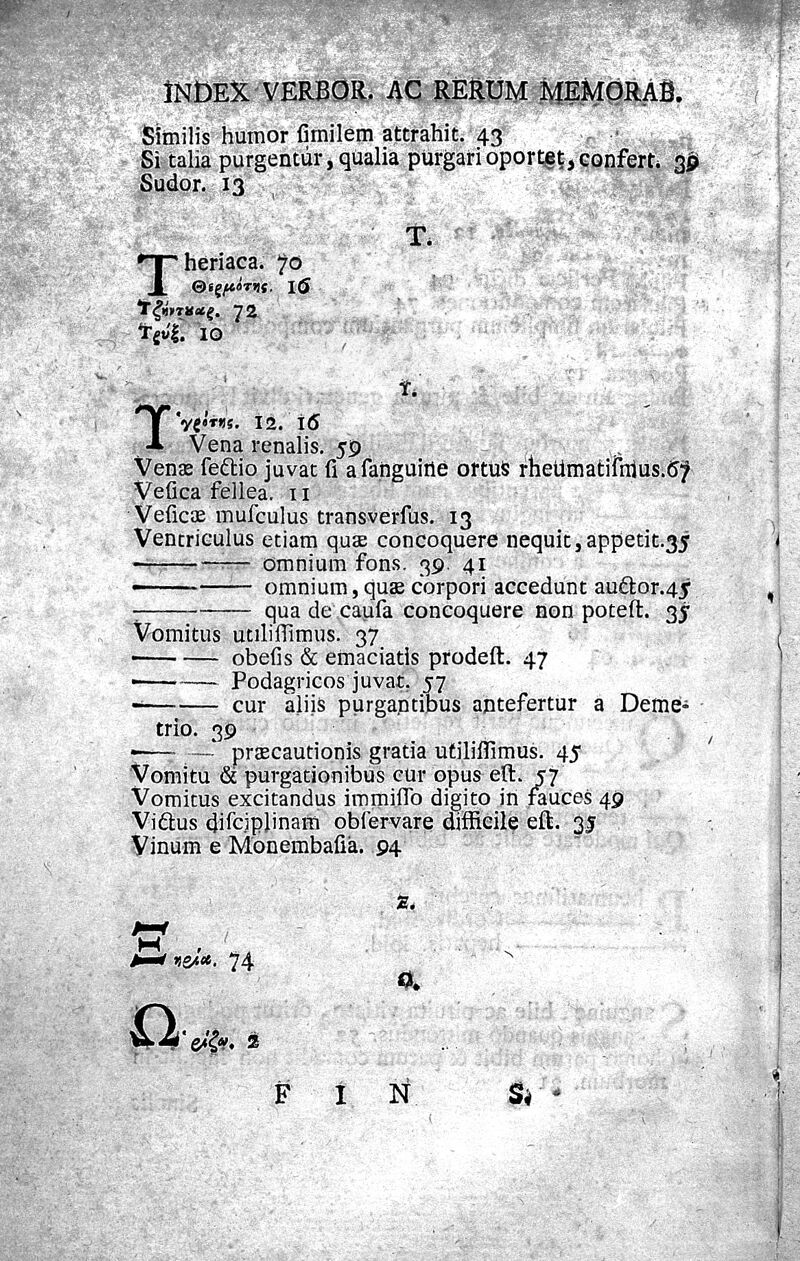 INDEX VERBOR. AC RERUM MEMORAB.
Similis humor ſimilem attrahit. 43
Si talia purgentur, qualia purgari oportet, confert. 39
Sudor. 13
T.
Theriaca. 70
Θερμότης. 16
Τζήντουαρ. 72
Τρύξ. 10
Υ.
Ὑγρότης. 12. 16
Vena renalis. 59
Venæ ſectio juvat ſi a ſanguine ortus rheumatiſmus. 67
Veſica fellea. 11
Veſicæ muſculus transverſus. 13
Ventriculus etiam quæ concoquere nequit, appetit. 35
—— —— omnium fons. 39. 41
—— —— omnium, quæ corpori accedunt auctor. 45
—— —— qua de cauſa concoquere non poteſt. 35
Vomitus utiliſſimus. 37
—— —— obeſis & emaciatis prodeſt. 47
—— —— Podagricos juvat. 57
—— —— cur aliis purgantibus antefertur a Deme-
trio. 39
—— —— præcautionis gratia utiliſſimus. 45
Vomitu & purgationibus cur opus eſt. 57
Vomitus excitandus immiſſo digito in fauces 49
Victus diſciplinam obſervare difficile eſt. 35
Vinum e Monembaſia. 94
Ξ.
Ξηρία. 74
Ω.
Ὡρίζω. 2
F I N S.